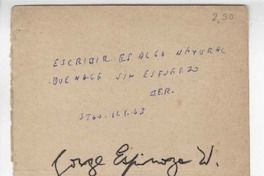 2,50
ESCRIBIR ES ALGO NATURAL
QUE NACE SIN ESFUERZO
STGO. 11.1.63
Jorge Espinoza W.